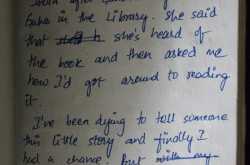 Gaba in the Library. She said
that she's heard of
the book and then asked me
how I'd got around to reading
it.
I've been dying to tell someone
this little story and finally I
had a chance. But